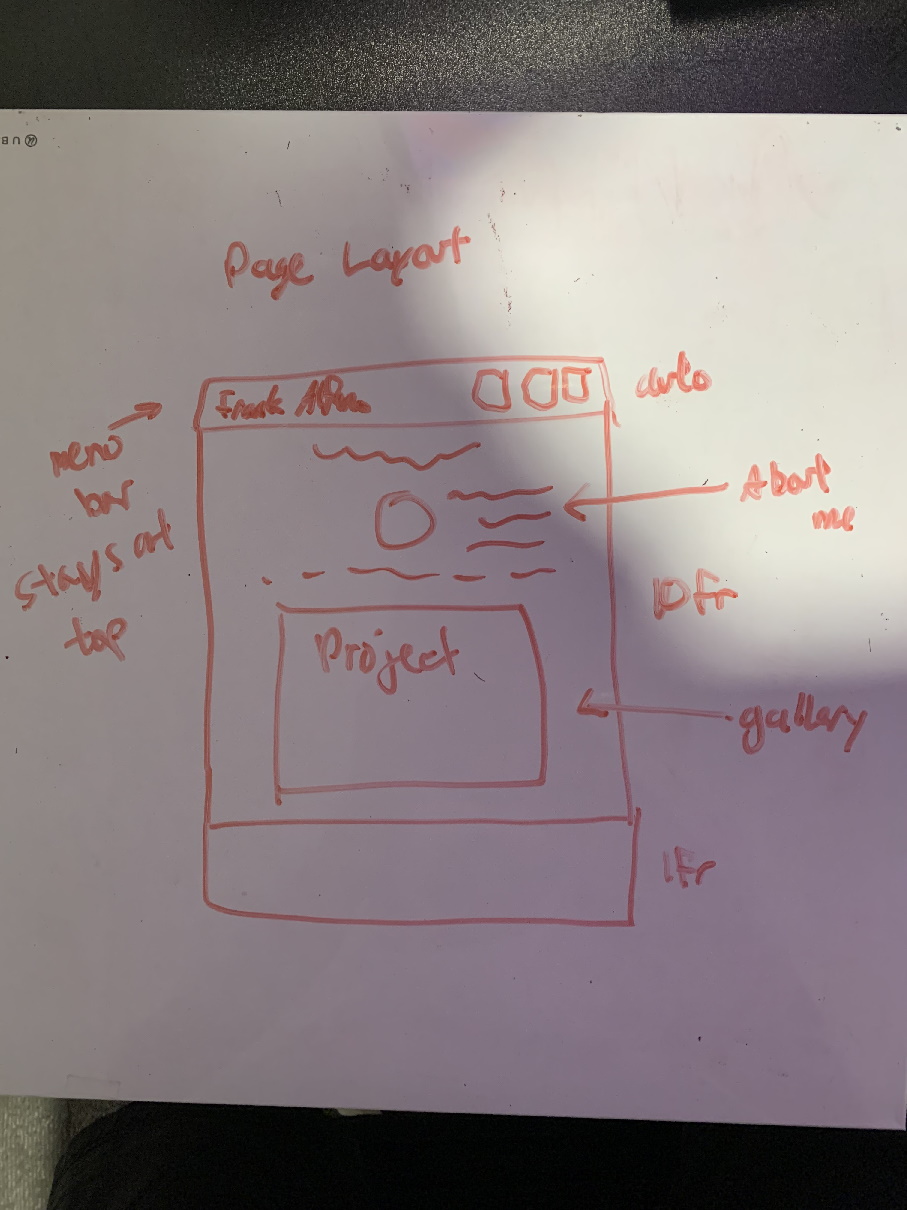 Page Layout
Frank
auto
menu
bar
stays at
top
About
me
10fr
Project
gallery
1fr